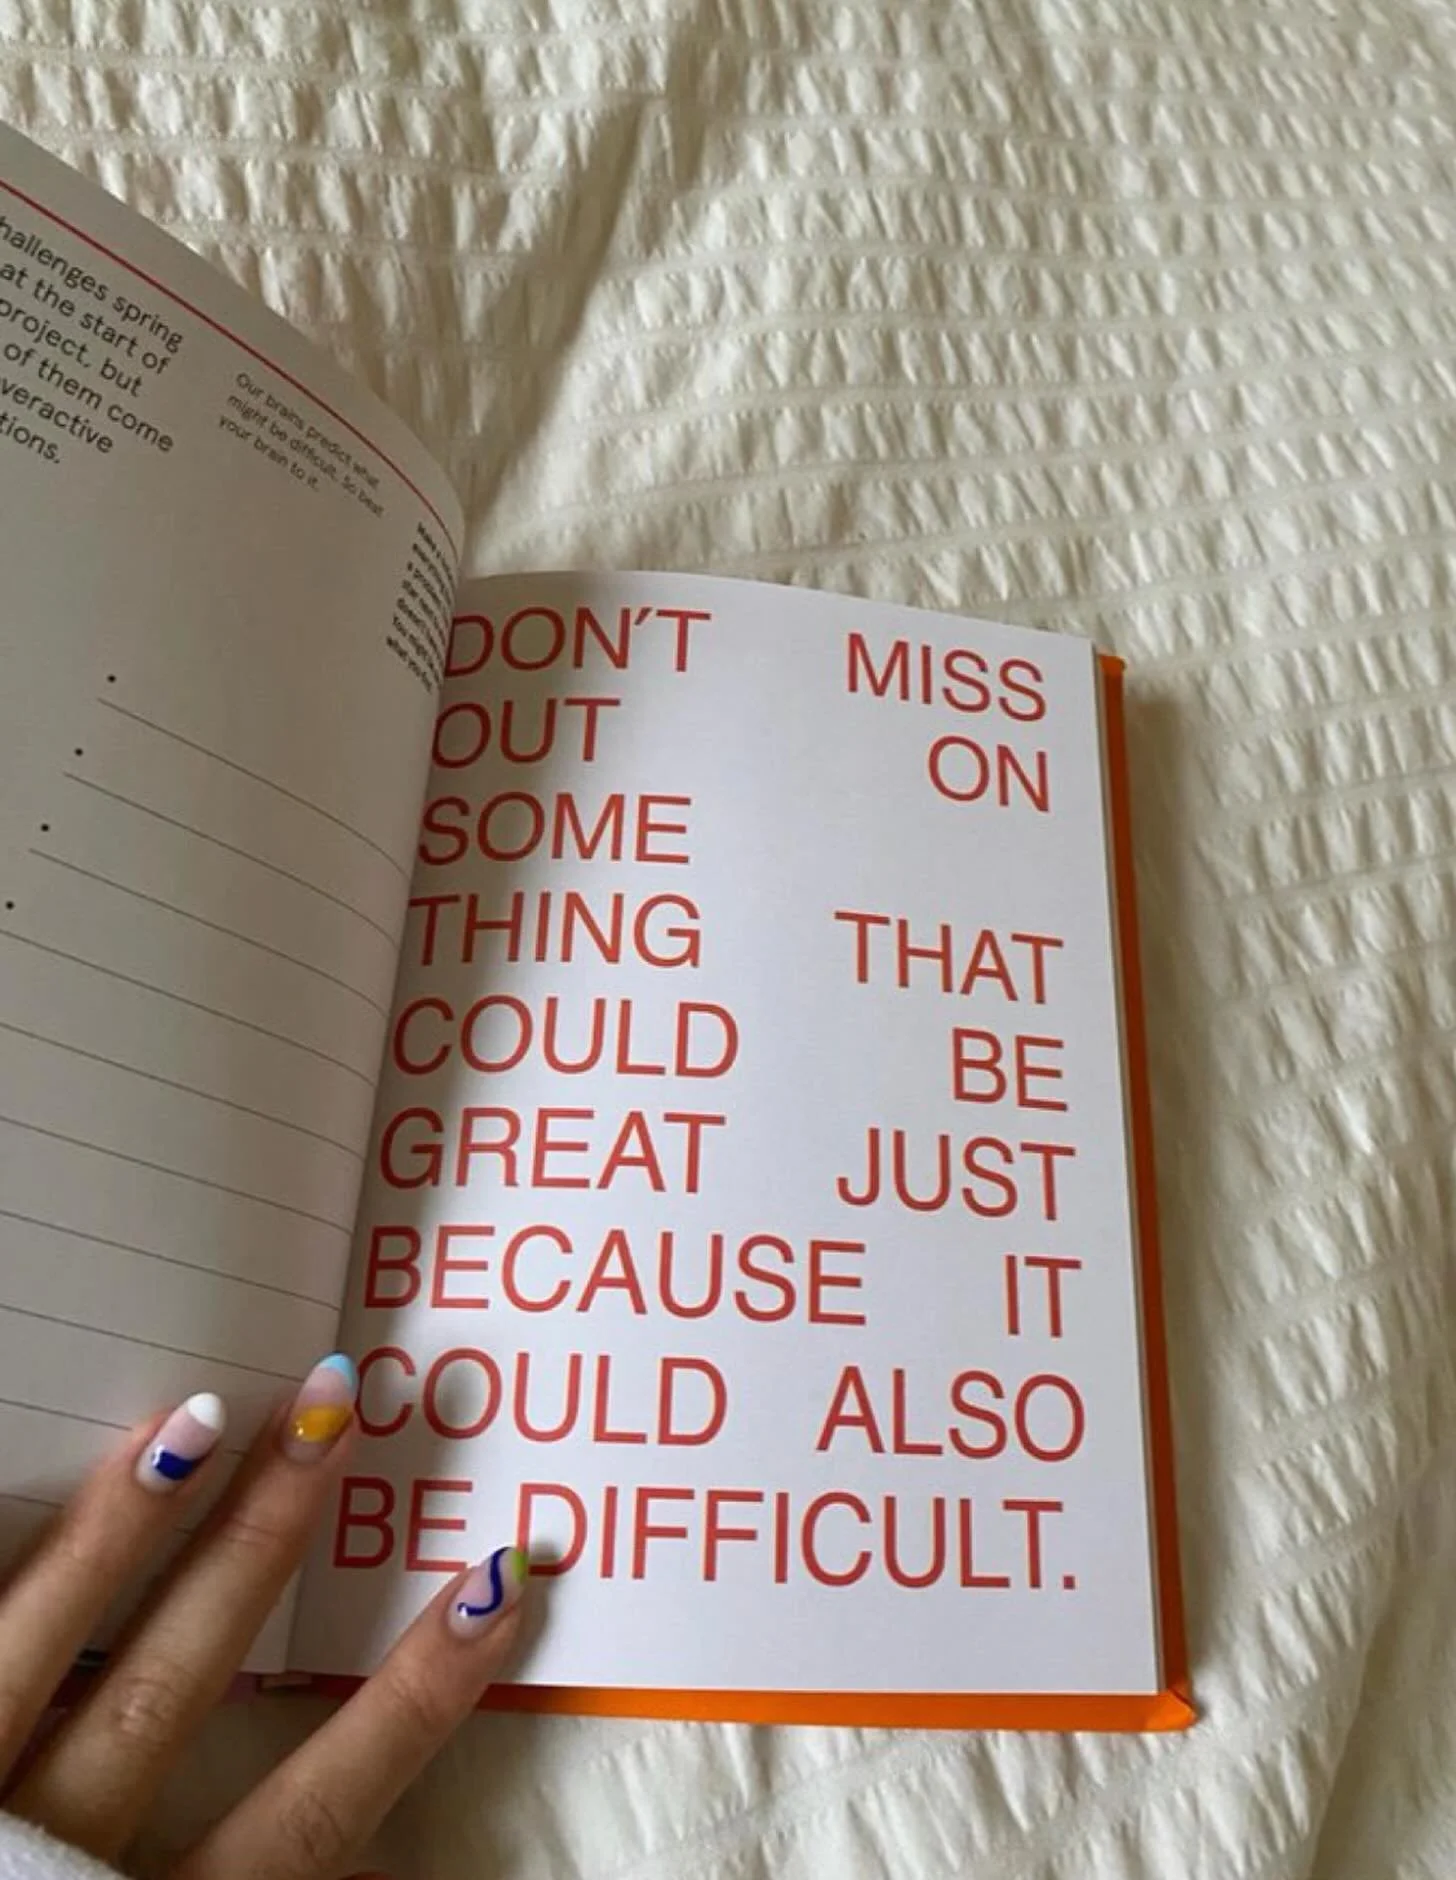 hallenges spring
at the start of
project, but
of them come
veractive
tions.
Our brains predict what
might be difficult. So beat
your brain to it.
DON'T MISS
OUT ON
SOME
THING THAT
COULD BE
GREAT JUST
BECAUSE IT
COULD ALSO
BE DIFFICULT.